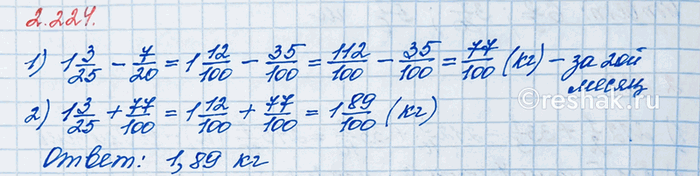 2.224.
1) 1 3/25 − 7/20 = 1 12/100 − 35/100 = 112/100 − 35/100 = 77/100 (кг) − за 2ой
месяц
2) 1 3/25 + 77/100 = 1 12/100 + 77/100 = 1 89/100 (кг)
Ответ: 1,89 кг
©reshak.ru